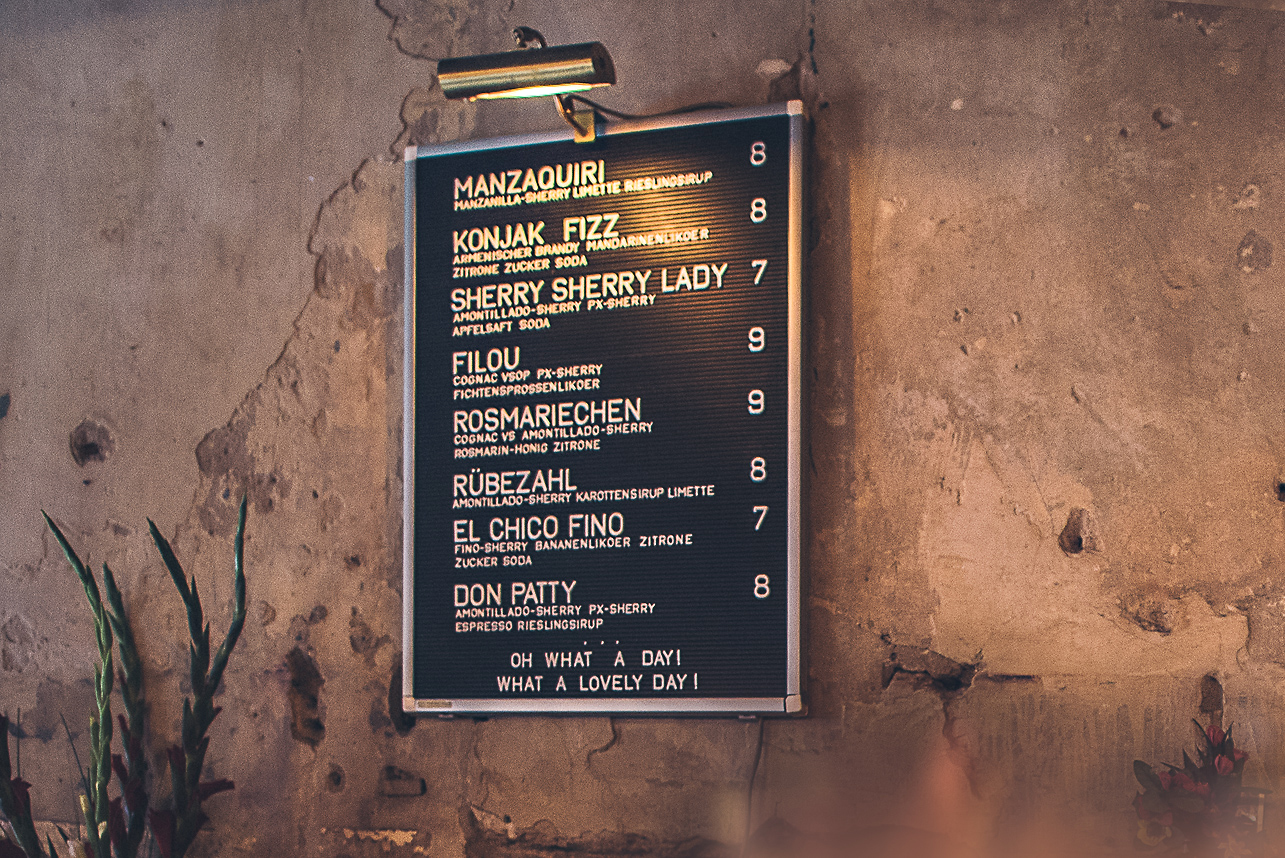 MANZAQUIRI 8
MANZANILLA-SHERRY LIMETTE RIESLINGSIRUP
KONJAK FIZZ 8
ARMENISCHER BRANDY MANDARINENLIKOER
ZITRONE ZUCKER SODA
SHERRY SHERRY LADY 7
AMONTILLADO-SHERRY PX-SHERRY
APFELSAFT SODA
FILOU 9
COGNAC VSOP PX-SHERRY
FICHTENSPROSSENLIKOER
ROSMARIECHEN 9
COGNAC VS AMONTILLADO-SHERRY
ROSMARIN-HONIG ZITRONE
RÜBEZAHL 8
AMONTILLADO-SHERRY KAROTTENSIRUP LIMETTE
EL CHICO FINO 7
FINO-SHERRY BANANENLIKOER ZITRONE
ZUCKER SODA
DON PATTY 8
AMONTILLADO-SHERRY PX-SHERRY
ESPRESSO RIESLINGSIRUP
...
OH WHAT A DAY!
WHAT A LOVELY DAY!